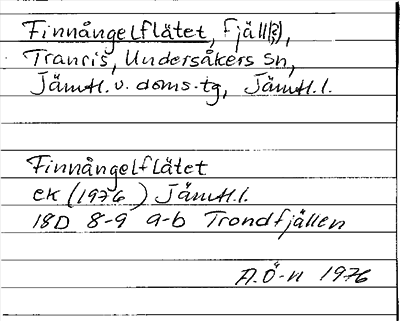 Finnångelflätet, fjäll(?),
Tranris, Undersåkers sn,
Jämtl. v. doms.tg, Jämtl.l.
Finnångelflätet
ek (1976) Jämtl.l.
18D 8-9 a-b Trondfjällen
A.Ö-n 1976